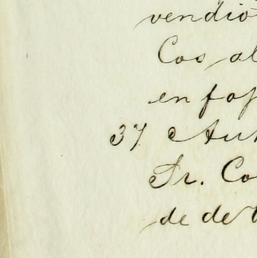 vendió
Cos al
en fo
37 Aur
Sr. Co
de de